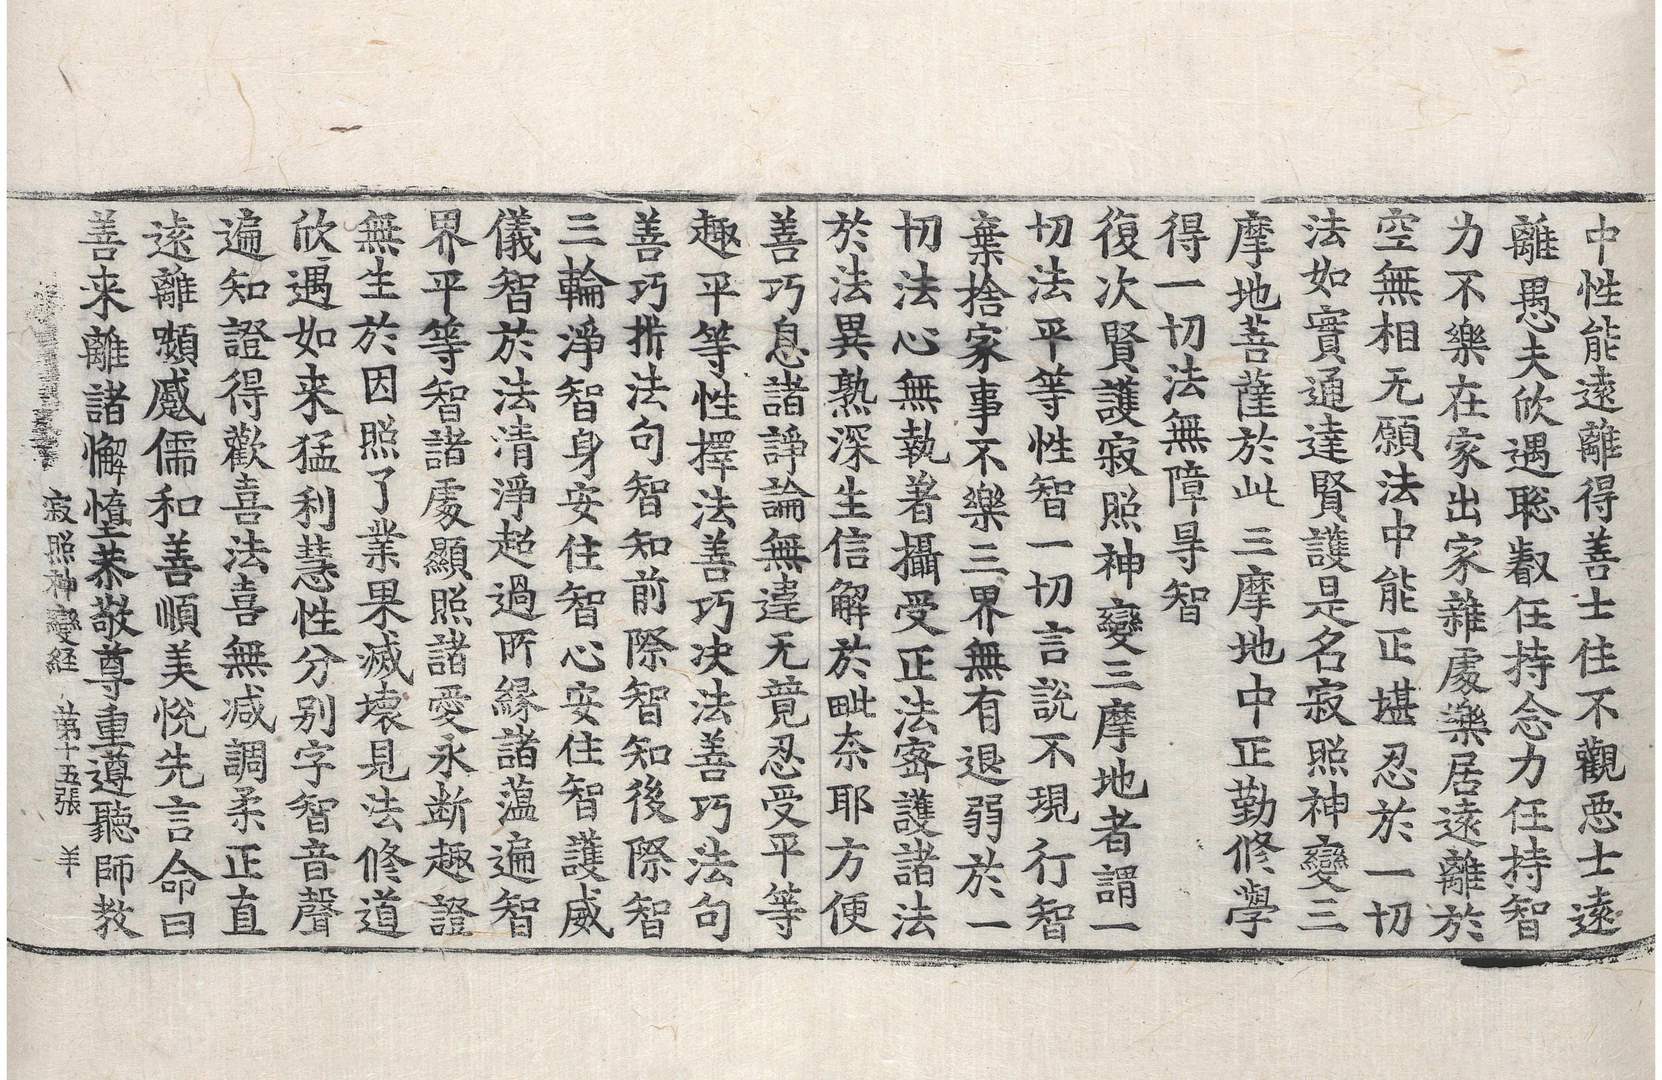 中性能遠離得善士住不觀惡士遠
離愚夫欣遇聡叡任持念力任持智
力不樂在家出家雜處樂居遠離於
空無相无願法中能正堪忍於一切
法如實通達賢護是名寂照神變三
摩地菩薩於此三摩地中正勤修學
得一切法無障㝵智
復次賢護寂照神變三摩地者謂一
切法平等性智一切言說不現行智
棄捨家事不樂三界無有退弱於一
切法心無執著攝受正法密護諸法
於法異熟深生信解於毗奈耶方便
善巧息諸諍論無違无競忍受平等
趣平等性擇法善巧決法善巧法句
善巧析法句智知前際智知後際智
三輪淨智身安住智心安住智護威
儀智於法清淨超過所緣諸蘊遍智
界平等智諸處顯照諸愛永断趣證
無生於因照了業果滅壞見法修道
欣遇如来猛利慧性分別字智音聲
遍知證得歡喜法喜無减調柔正直
遠離嚬蹙儒和善順美悅先言命曰
善来離諸懈憻恭敬尊重遵聽師教
寂照神變経 第十五張 羊